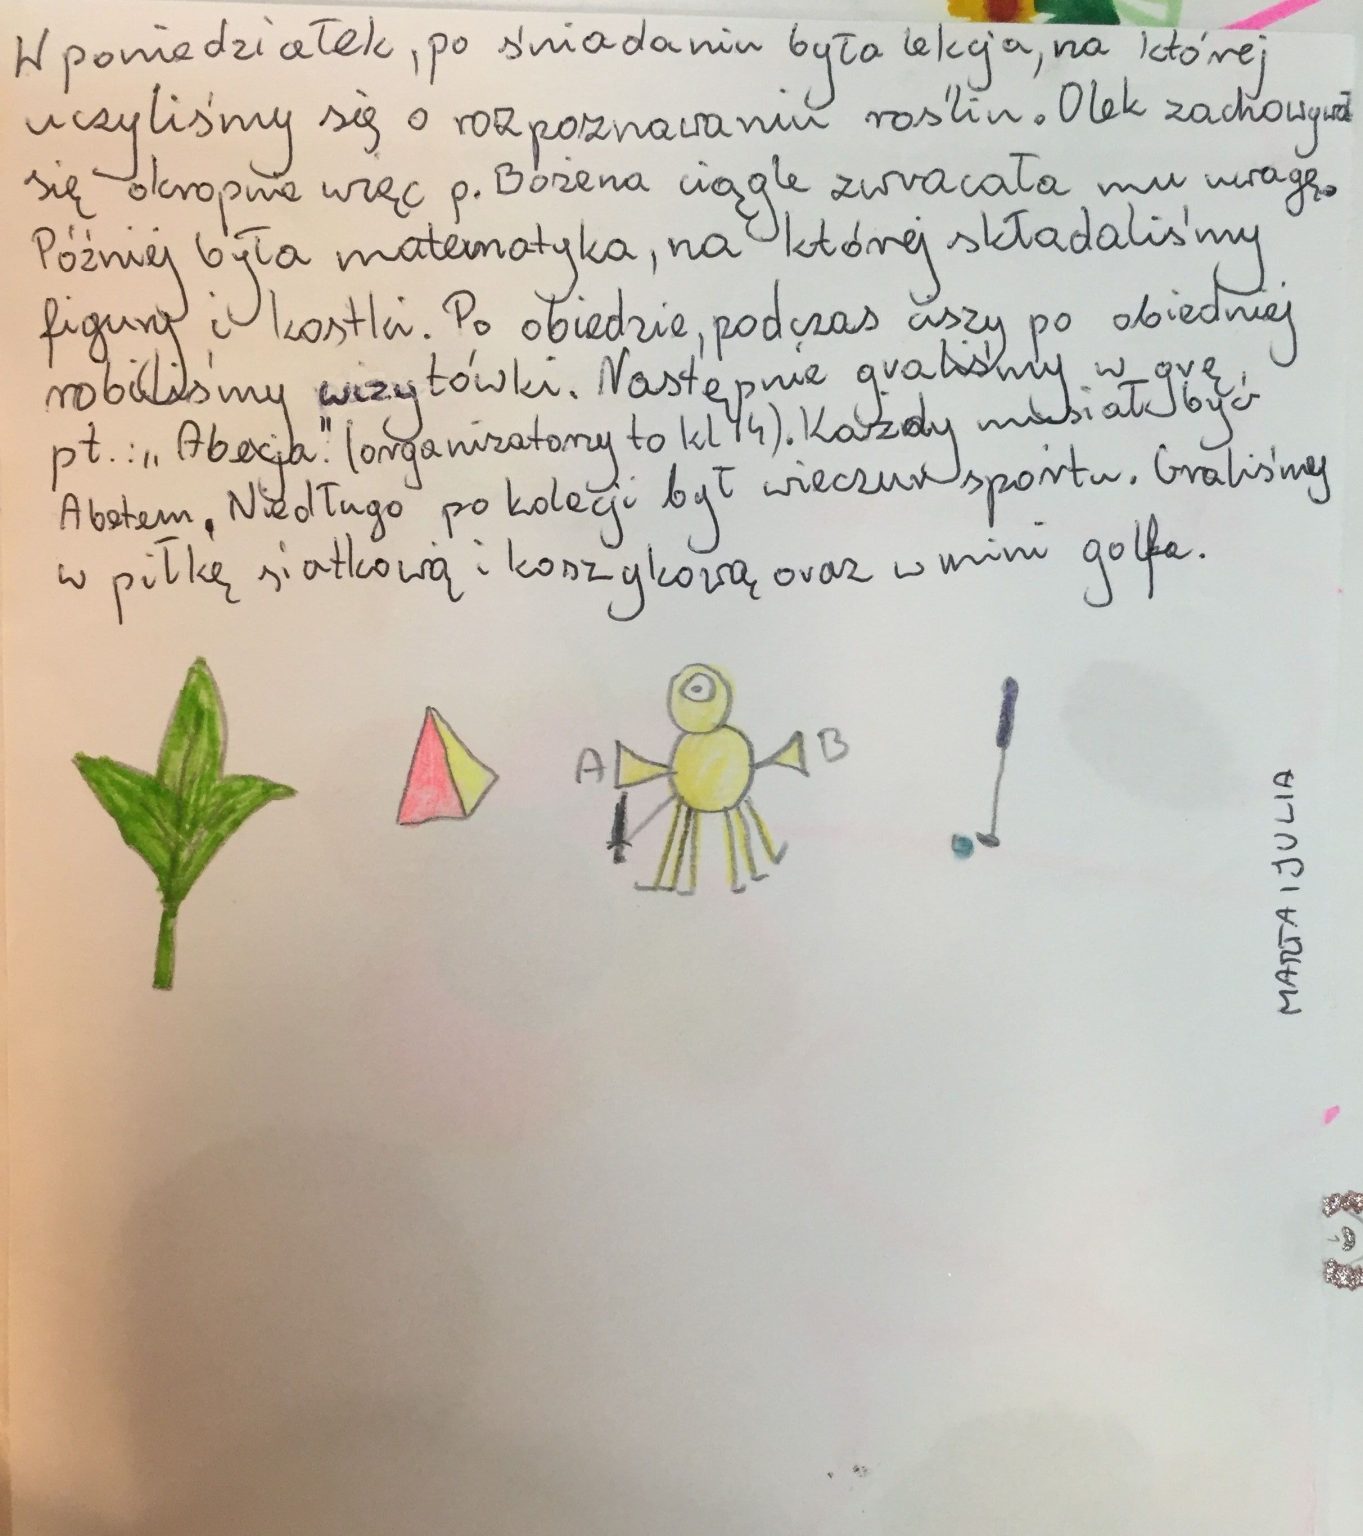 W poniedziałek, po śniadaniu była lekcja, na której
uczyliśmy się o rozpoznawaniu roślin. Olek zachowywał
się okropnie więc p. Bożena ciągle zwracała mu uwagę.
Później była matematyka, na której składaliśmy
figury i kostki. Po obiedzie, podczas ciszy po obiedniej
robiliśmy wizytówki. Następnie graliśmy w grę,
pt.: „Abecja" (organizatorzy to kl 4). Każdy musiał być
Abetem. Niedługo po kolacji był wieczur sportu. Graliśmy
w piłkę siatkową i koszykową oraz w mini golfa.
A B
MARTA I JULIA